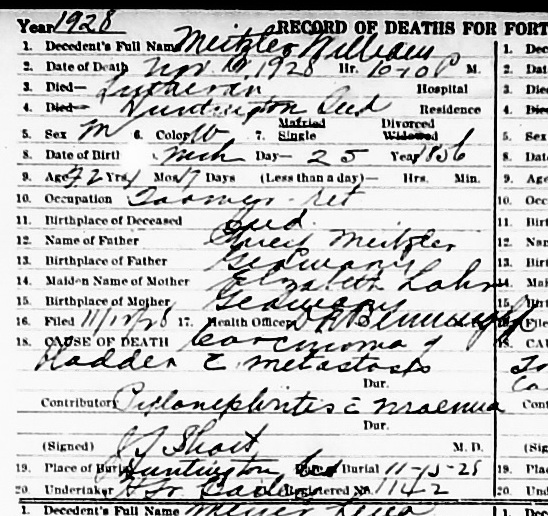 Year 1928 RECORD OF DEATHS FOR FORT
1. Decedent's Full Name Meitzler William 1. Dece
2. Date of Death Nov 10 1928 Hr. 10-10 P M. 2. Dat
3. Died— Lutheran Hospital 3. Died
4. Died— Huntington Ind Residence 4. Died
5. Sex M 6. Color W 7. Married Single Divorced Widowed 5. Sex
8. Date of Birth Mch Day— 25 Year 1856 8. Date
9. Age 72 Yrs. Mos. 17 Days (Less than a day)— Hrs. Min. 9. Age
10. Occupation Farmer-ret 10. Occ
11. Birthplace of Deceased Ind. 11. Birt
12. Name of Father Meitzler 12. Nan
13. Birthplace of Father Germany 13. Birt
14. Maiden Name of Mother Elizabeth Lahr 14. Mai
15. Birthplace of Mother Germany 15. Birt
16. Filed 11/12/28 17. Health Officer 16. Filed
18. CAUSE OF DEATH Carcinoma of 18. CAU
bladder c metastosis
Dur.
Contributory Pyelonephritis c uraemia Cont
Dur.
(Signed) J J Shoit M. D. (Sig
19. Place of Burial Huntington Ind Date of Burial 11-13-28 19. Place
20. Undertaker Registered No. 1142 20. Unde
1. Decedent's Full Name 1. Dece